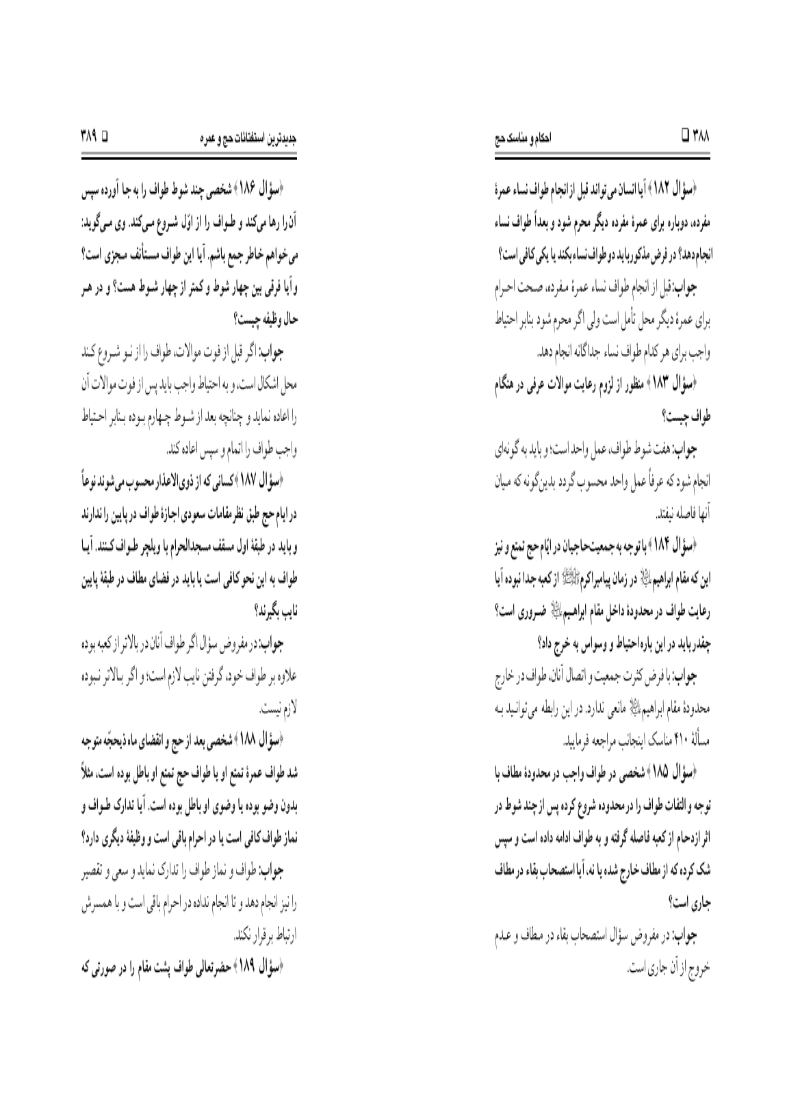 ۳۸۸ ❑ احکام و مناسک حج
﴿سؤال ۱۸۲﴾ آیا انسان می‌تواند قبل از انجام طواف نساء عمرهٔ
مفرده، دوباره برای عمرهٔ مفرده دیگر محرم شود و بعداً طواف نساء
انجام دهد؟ در فرض مذکور باید دو طواف نساء بکند یا یکی کافی است؟
جواب: قبل از انجام طواف نساء عمرهٔ مفرده، صحت احرام
برای عمرهٔ دیگر محل تأمل است ولی اگر محرم شود بنابر احتیاط
واجب برای هر کدام طواف نساء جداگانه انجام دهد.
﴿سؤال ۱۸۳﴾ منظور از لزوم رعایت موالات عرفی در هنگام
طواف چیست؟
جواب: هفت شوط طواف، عمل واحد است؛ و باید به گونه‌ای
انجام شود که عرفاً عمل واحد محسوب گردد بدین‌گونه که میان
آنها فاصله نیفتد.
﴿سؤال ۱۸۴﴾ با توجه به جمعیت حاجیان در ایّام حج تمتع و نیز
این که مقام ابراهیم در زمان پیامبر اکرم از کعبه جدا نبوده آیا
رعایت طواف در محدودهٔ داخل مقام ابراهیم ضروری است؟
چقدر باید در این باره احتیاط و وسواس به خرج داد؟
جواب: با فرض کثرت جمعیت و اتصال آنان، طواف در خارج
محدودهٔ مقام ابراهیم مانعی ندارد. در این رابطه می‌توانید به
مسألهٔ ۴۱۰ مناسک اینجانب مراجعه فرمایید.
﴿سؤال ۱۸۵﴾ شخصی در طواف واجب در محدودهٔ مطاف با
توجه و التفات طواف را در محدوده شروع کرده پس از چند شوط در
اثر ازدحام از کعبه فاصله گرفته و به طواف ادامه داده است و سپس
شک کرده که از مطاف خارج شده یا نه، آیا استصحاب بقاء در مطاف
جاری است؟
جواب: در مفروض سؤال استصحاب بقاء در مطاف و عدم
خروج از آن جاری است.
جدیدترین استفتائات حج و عمره ❑ ۳۸۹
﴿سؤال ۱۸۶﴾ شخصی چند شوط طواف را به جا آورده سپس
آن را رها می‌کند و طواف را از اوّل شروع می‌کند. وی می‌گوید:
می‌خواهم خاطر جمع باشم. آیا این طواف مستأنف مجزی است؟
و آیا فرقی بین چهار شوط و کمتر از چهار شوط هست؟ و در هر
حال وظیفه چیست؟
جواب: اگر قبل از فوت موالات، طواف را از نو شروع کند
محل اشکال است، و به احتیاط واجب باید پس از فوت موالات آن
را اعاده نماید و چنانچه بعد از شوط چهارم بوده بنابر احتیاط
واجب طواف را اتمام و سپس اعاده کند.
﴿سؤال ۱۸۷﴾ کسانی که از ذوی‌الاعذار محسوب می‌شوند نوعاً
در ایام حج طبق نظر مقامات سعودی اجازهٔ طواف در پایین را ندارند
و باید در طبقهٔ اول مسقف مسجدالحرام با ویلچر طواف کنند. آیا
طواف به این نحو کافی است یا باید در فضای مطاف در طبقهٔ پایین
نایب بگیرند؟
جواب: در مفروض سؤال اگر طواف آنان در بالاتر از کعبه بوده
علاوه بر طواف خود، گرفتن نایب لازم است؛ و اگر بالاتر نبوده
لازم نیست.
﴿سؤال ۱۸۸﴾ شخصی بعد از حج و انقضای ماه ذیحجّه متوجه
شد طواف عمرهٔ تمتع او یا طواف حج تمتع او باطل بوده است، مثلاً
بدون وضو بوده یا وضوی او باطل بوده است. آیا تدارک طواف و
نماز طواف کافی است یا در احرام باقی است و وظیفهٔ دیگری دارد؟
جواب: طواف و نماز طواف را تدارک نماید و سعی و تقصیر
را نیز انجام دهد و تا انجام نداده در احرام باقی است و با همسرش
ارتباط برقرار نکند.
﴿سؤال ۱۸۹﴾ حضرتعالی طواف پشت مقام را در صورتی که